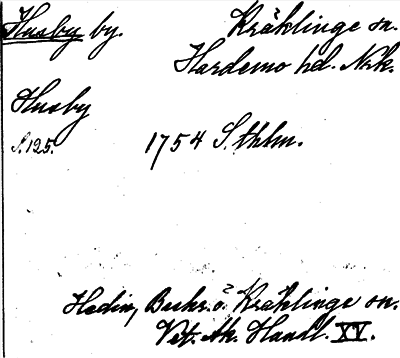 Husby by. Kräklinge sn.
Hardemo hd. Nrk.
Husby
S. 125. 1754 S. thlm.
Hedin, Beskr. ö. Kräklinge sn.
Vet. Ak. Handl. XV.